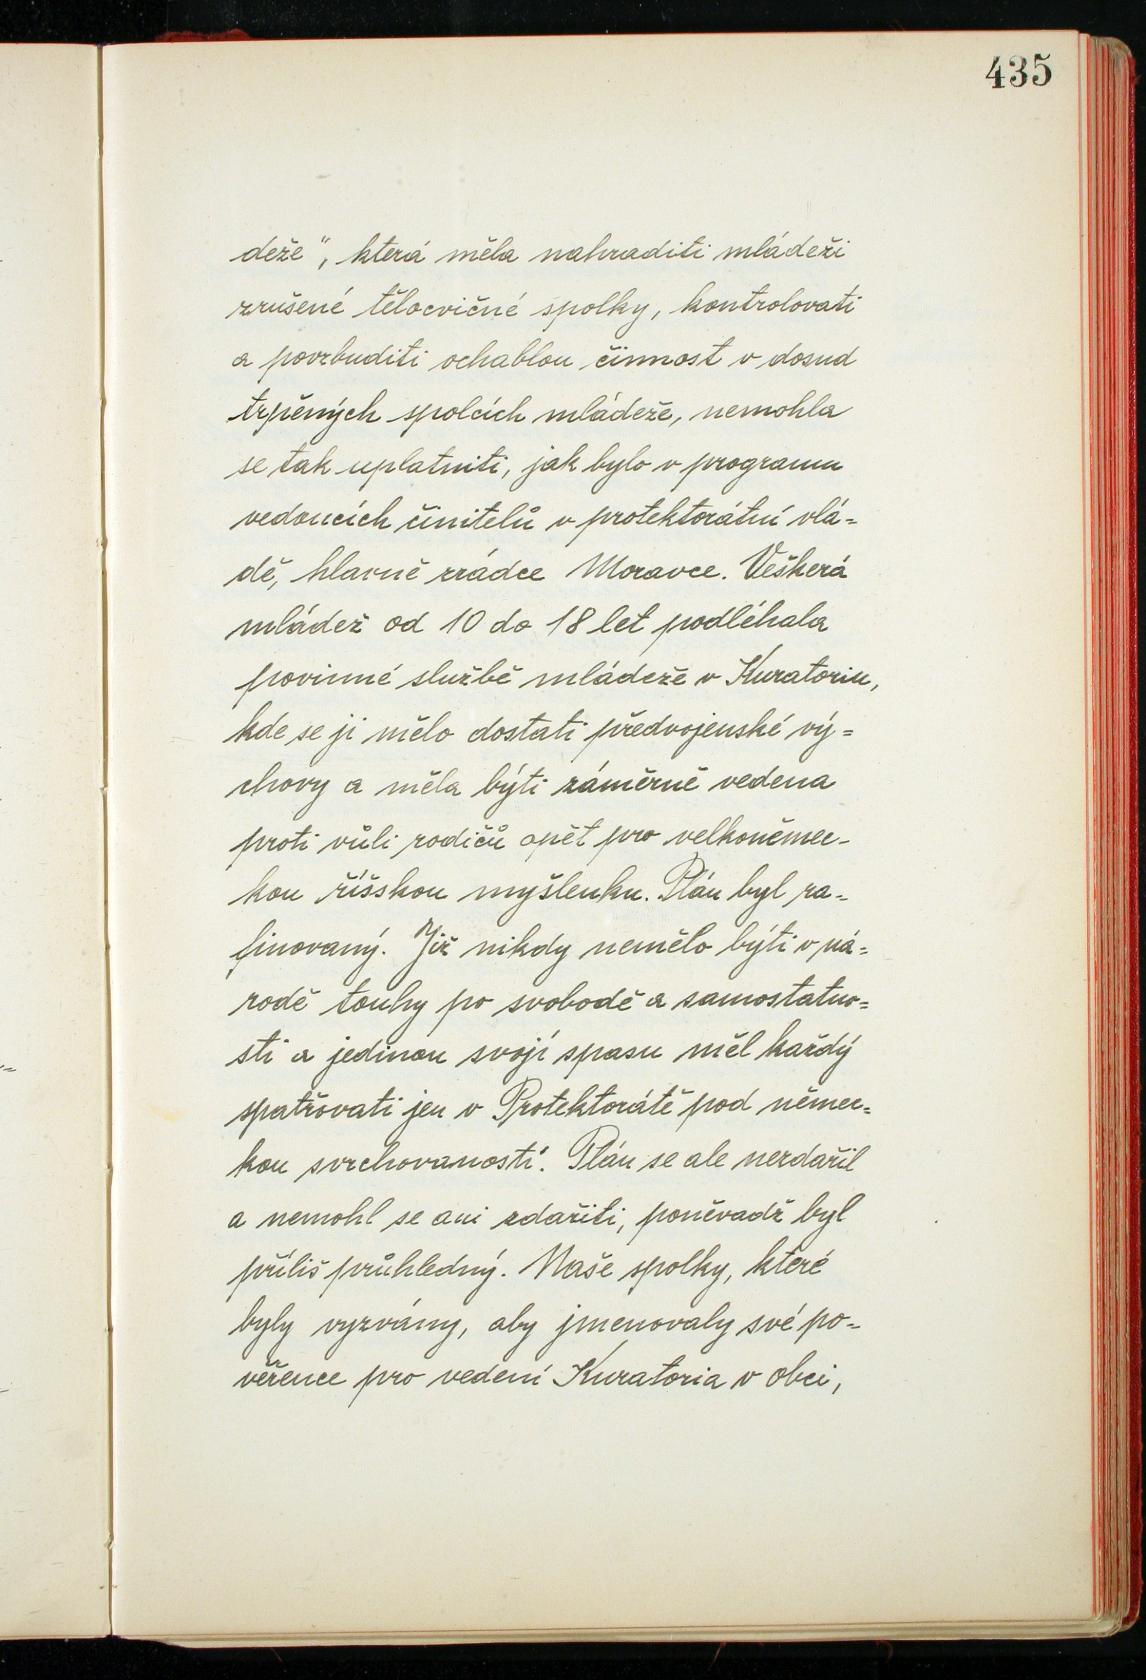 435
deže", která měla nahraditi mládeži
zrušené tělocvičné spolky, kontrolovati
a povzbuditi ochablou činnost v dosud
trpěných spolcích mládeže, nemohla
se tak uplatniti, jak bylo v programu
vedoucích činitelů v protektorátní vlá=
dě, hlavně zrádce Moravce. Veškerá
mládež od 10 do 18 let podléhala
povinné službě mládeže v Kuratoriu,
kde se ji mělo dostati předvojenské vý=
chovy a měla býti záměrně vedena
proti vůli rodičů opět pro velkoněmec-
kou říšskou myšlenku. Plán byl ra-
finovaný. Již nikdy nemělo býti v ná=
rodě touhy po svobodě a samostatno=
sti a jedinou svojí spasu měl každý
spatřovati jen v Protektorátě pod němec=
kou svrchovaností. Plán se ale nezdařil
a nemohl se ani zdařiti, poněvadž byl
příliš průhledný. Naše spolky, které
byly vyzvány, aby jmenovaly své po-
věřence pro vedení Kuratoria v obci,